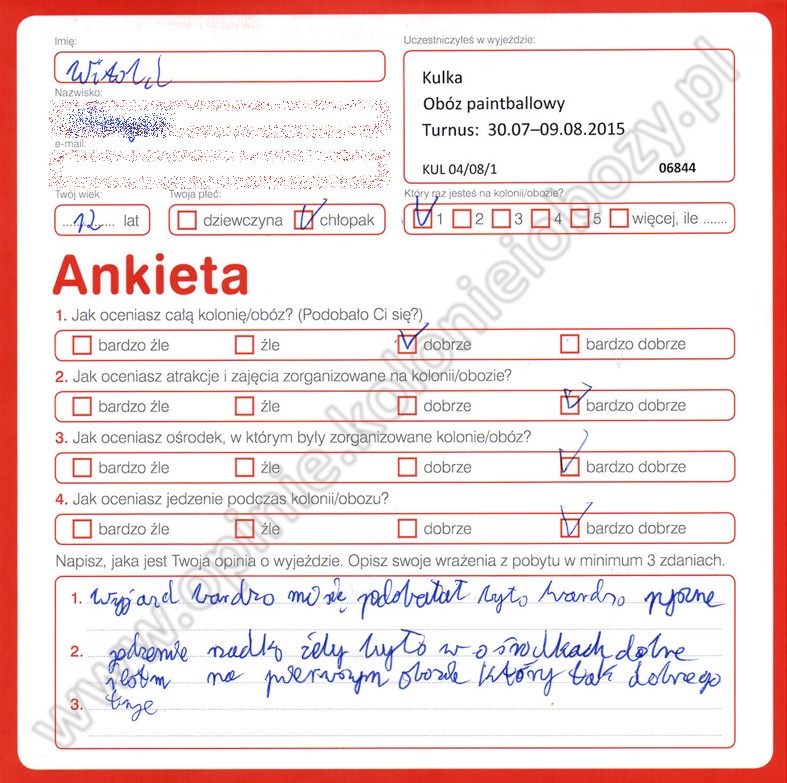 Imię:
Witold
Nazwisko:
e-mail:
Twój wiek:
12 lat
Twoja płeć:
dziewczyna chłopak
Uczestniczyłeś w wyjeździe:
Kulka
Obóz paintballowy
Turnus: 30.07–09.08.2015
KUL 04/08/1 06844
Który raz jesteś na kolonii/obozie?
1 2 3 4 5 więcej, ile .......
Ankieta
1. Jak oceniasz całą kolonię/obóz? (Podobało Ci się?)
bardzo źle źle dobrze bardzo dobrze
2. Jak oceniasz atrakcje i zajęcia zorganizowane na kolonii/obozie?
bardzo źle źle dobrze bardzo dobrze
3. Jak oceniasz ośrodek, w którym były zorganizowane kolonie/obóz?
bardzo źle źle dobrze bardzo dobrze
4. Jak oceniasz jedzenie podczas kolonii/obozu?
bardzo źle źle dobrze bardzo dobrze
Napisz, jaka jest Twoja opinia o wyjeździe. Opisz swoje wrażenia z pobytu w minimum 3 zdaniach.
1. wyjazd bardzo mi się było bardzo
2. żeby było w ośrodkach dobre
na pierwszym obozie który tak dobrego
3.
www.opinie.kolonieiobozy.pl